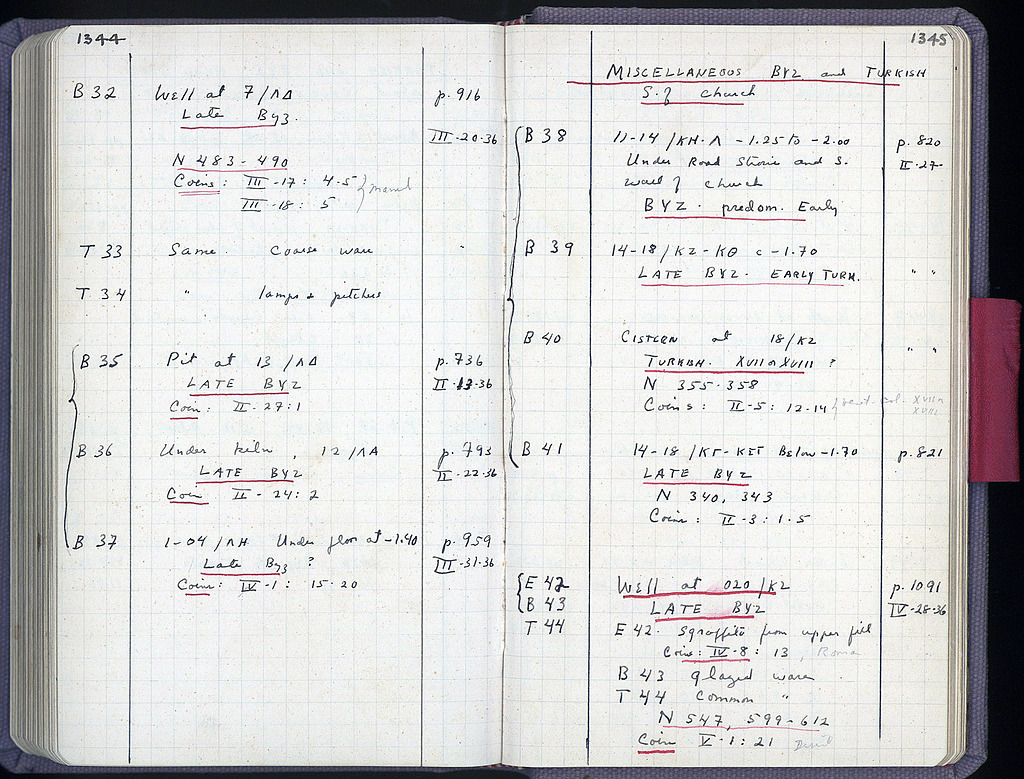 1344
B 32 Well at 7/ΛΔ p. 916
Late Byz. III-20-36
N 483-490
Coins: III-17: 4-5
III-18: 5
T 33 Same. Coarse ware "
T 34 " lamps & pitchers
B 35 Pit at 13/ΛΔ p. 736
LATE BYZ II-13-36
Coin: II-27:1
B 36 Under kiln, 12/ΛA p. 793
LATE BYZ II-22-36
Coin II-24:2
B 37 1-04/ΛH Under floor at -1.40 p. 959
Late Byz ? III-31-36
Coin: IV-1: 15-20
1345
MISCELLANEOUS BYZ and TURKISH
S. of church
B 38 11-14/KH-Λ -1.25 to -2.00 p. 820
Under Road Stosie and S. II-27-
wall of church
BYZ. predom. Early
B 39 14-18/KZ-KΘ c -1.70
LATE BYZ. EARLY TURK. " "
B 40 CISTERN at 18/KZ " "
TURKISH. XVII or XVIII ?
N 355-358
Coins: II-5: 12-14
XVII or
XVIII
B 41 14-18/KΓ- Below -1.70 p. 821
LATE BYZ
N 340, 343
Coins: II-3: 1-5
E 42 Well at 020/KZ p. 1091
B 43 LATE BYZ IV-28-36
T 44 E 42. Sgraffito from upper fill
Coins: IV-8: 13, Roman
B 43 glazed ware
T 44 Common "
N 547, 599-612
Coin V-1: 21